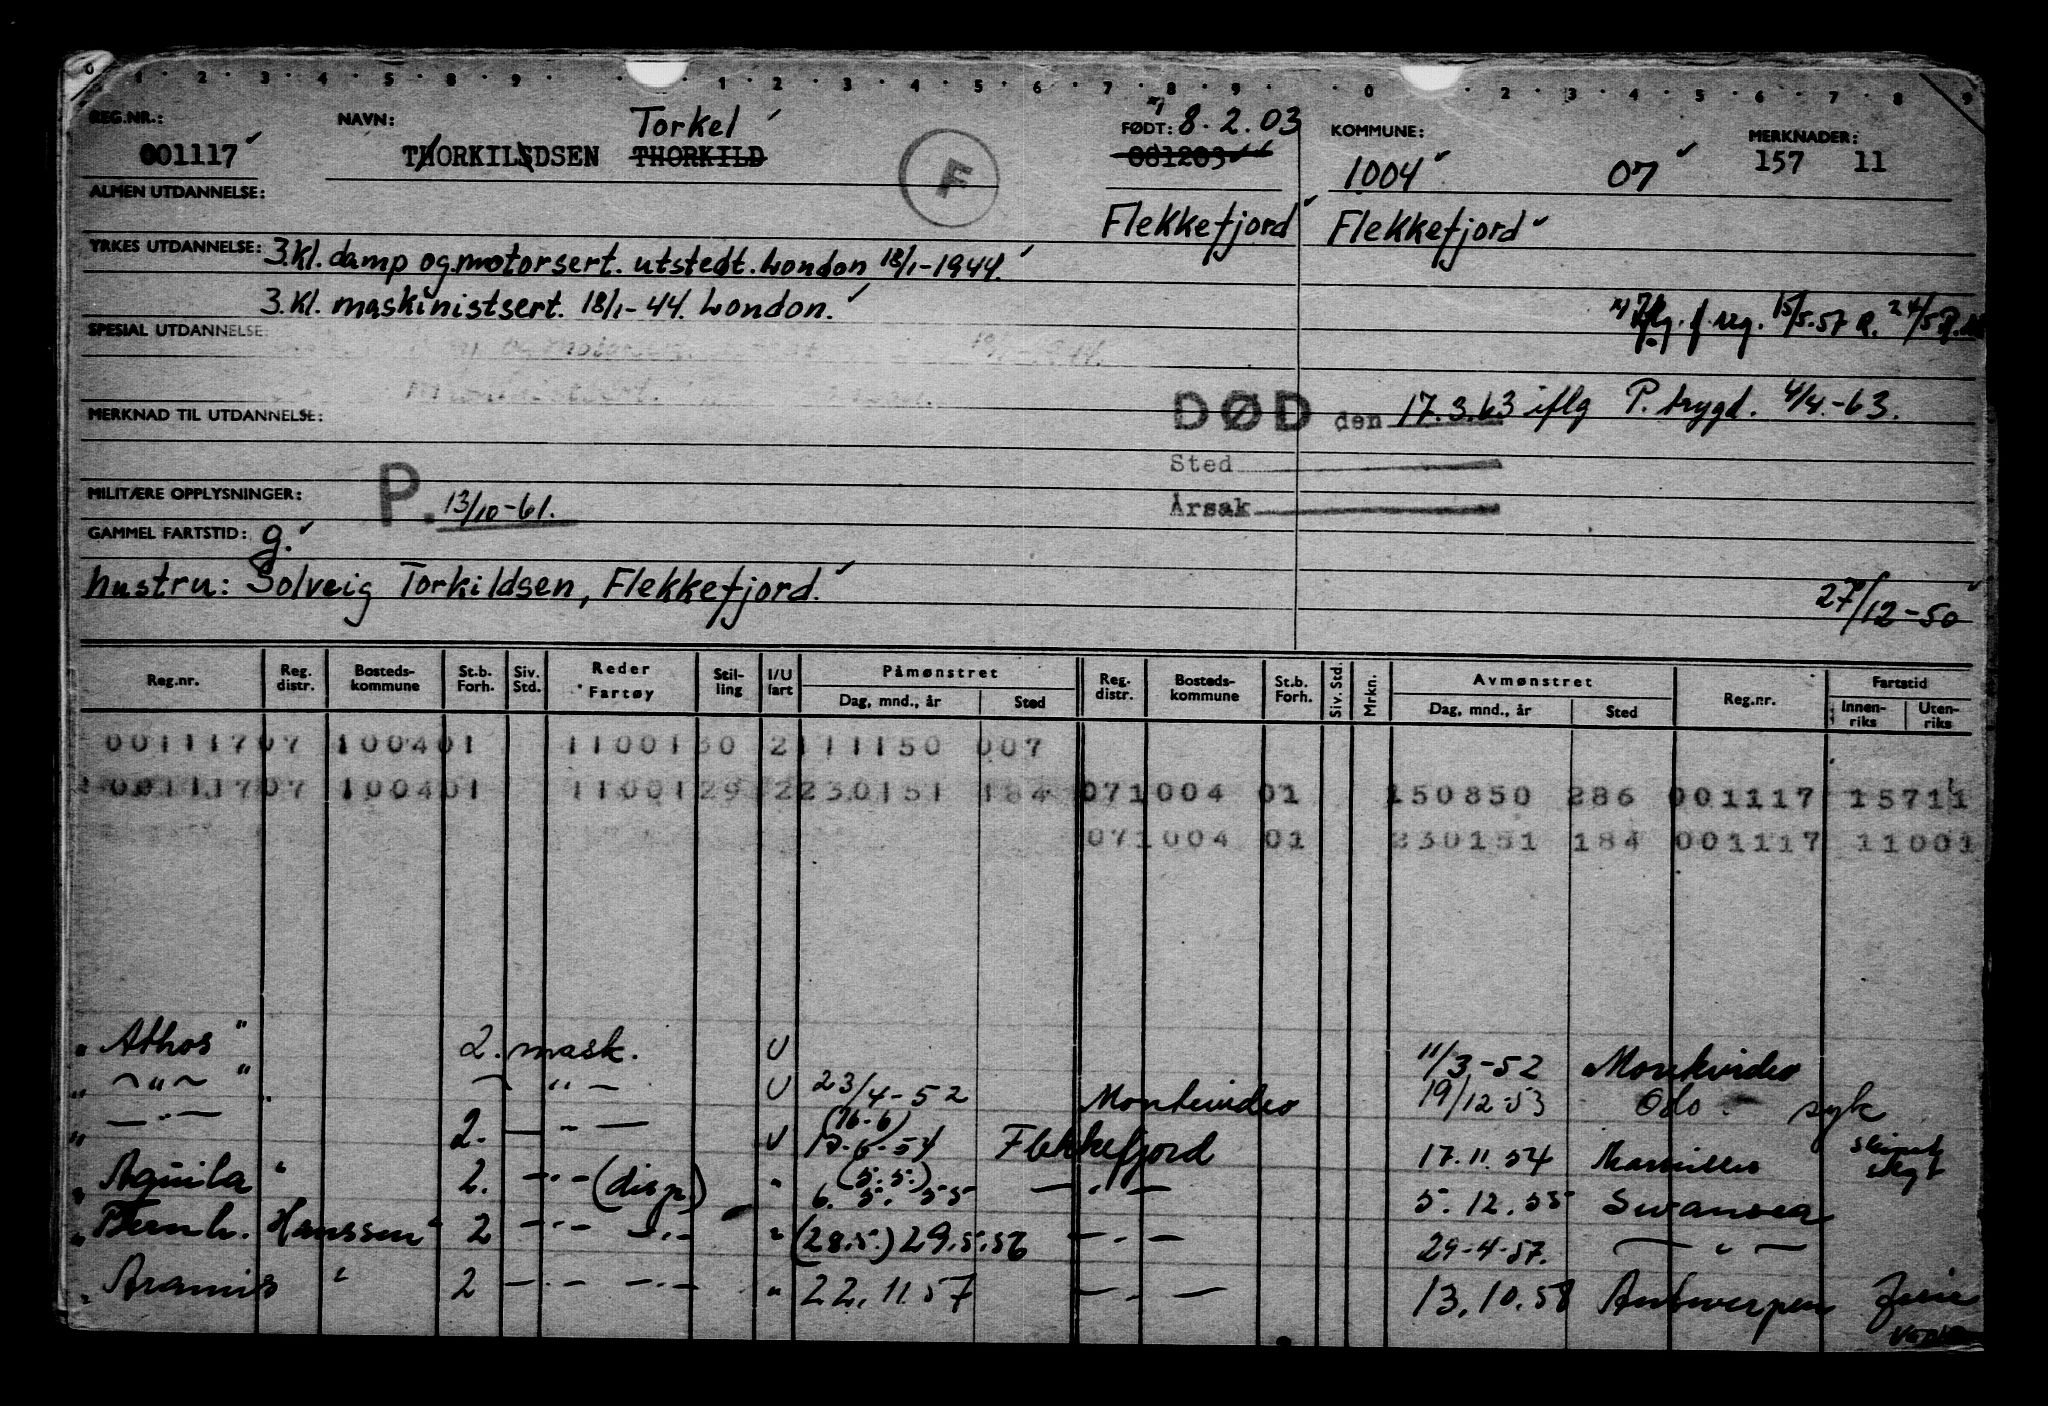 REG.NR.: NAVN: Torkel FØDT: 8.2.03 KOMMUNE: MERKNADER:
001117 THORKILSDSEN THORKILD F 081203 1004 07 157 11
ALMEN UTDANNELSE:
Flekkefjord Flekkefjord
YRKES UTDANNELSE: 3.kl. damp og motorsert. utstedt. London 18/1-1944.
3.kl. maskinistsert. 18/1-44. London.
f. reg. 15/5-57 R. 24/5
SPESIAL UTDANNELSE:
MERKNAD TIL UTDANNELSE:
DØD den 17.3.63 iflg P. trygd. 4/4.-63.
Sted
MILITÆRE OPPLYSNINGER: P. 13/10-61.
Årsak
GAMMEL FARTSTID: g.
hustru: Solveig Torkildsen, Flekkefjord.
27/12-50
Reg.nr. Reg. distr. Bosteds-kommune St.b. Forh. Siv. Std. Reder Fartøy Stil-ling I/U fart Påmønstret Dag, mnd., år Sted Reg. distr. Bosteds-kommune St.b. Forh. Siv. Std. Mrkn. Avmønstret Dag, mnd., år Sted Reg.nr. Fartstid Innen-riks Uten-riks
001117 07 1004 01 11001 30 2 111150 007
001117 07 1004 01 11001 29 2 230151 184 07 1004 01 150850 286 001117 15711
07 1004 01 230151 184 001117 11001
" Athos " 2. mask. U 11/3-52 Montevideo
" — " — " — " — U 23/4-52 Montevideo 19/12-53 Oslo. syk
" — . — 2. — " — U (16-6) 17-6-54 Flekkefjord 17.11.54 Marseilles
" Aquila " 2. — " — (disp) " (5.5.) 6.5.55 — " — 5.12.55 Swansea
" Bernh. Hanssen " 2 — " — — " — " (28.5.) 29.5.56 — " — 29-4-57. — " —
" Aramis " 2 — " — — " — " 22.11.57 — " — 13.10.58 Antwerpen